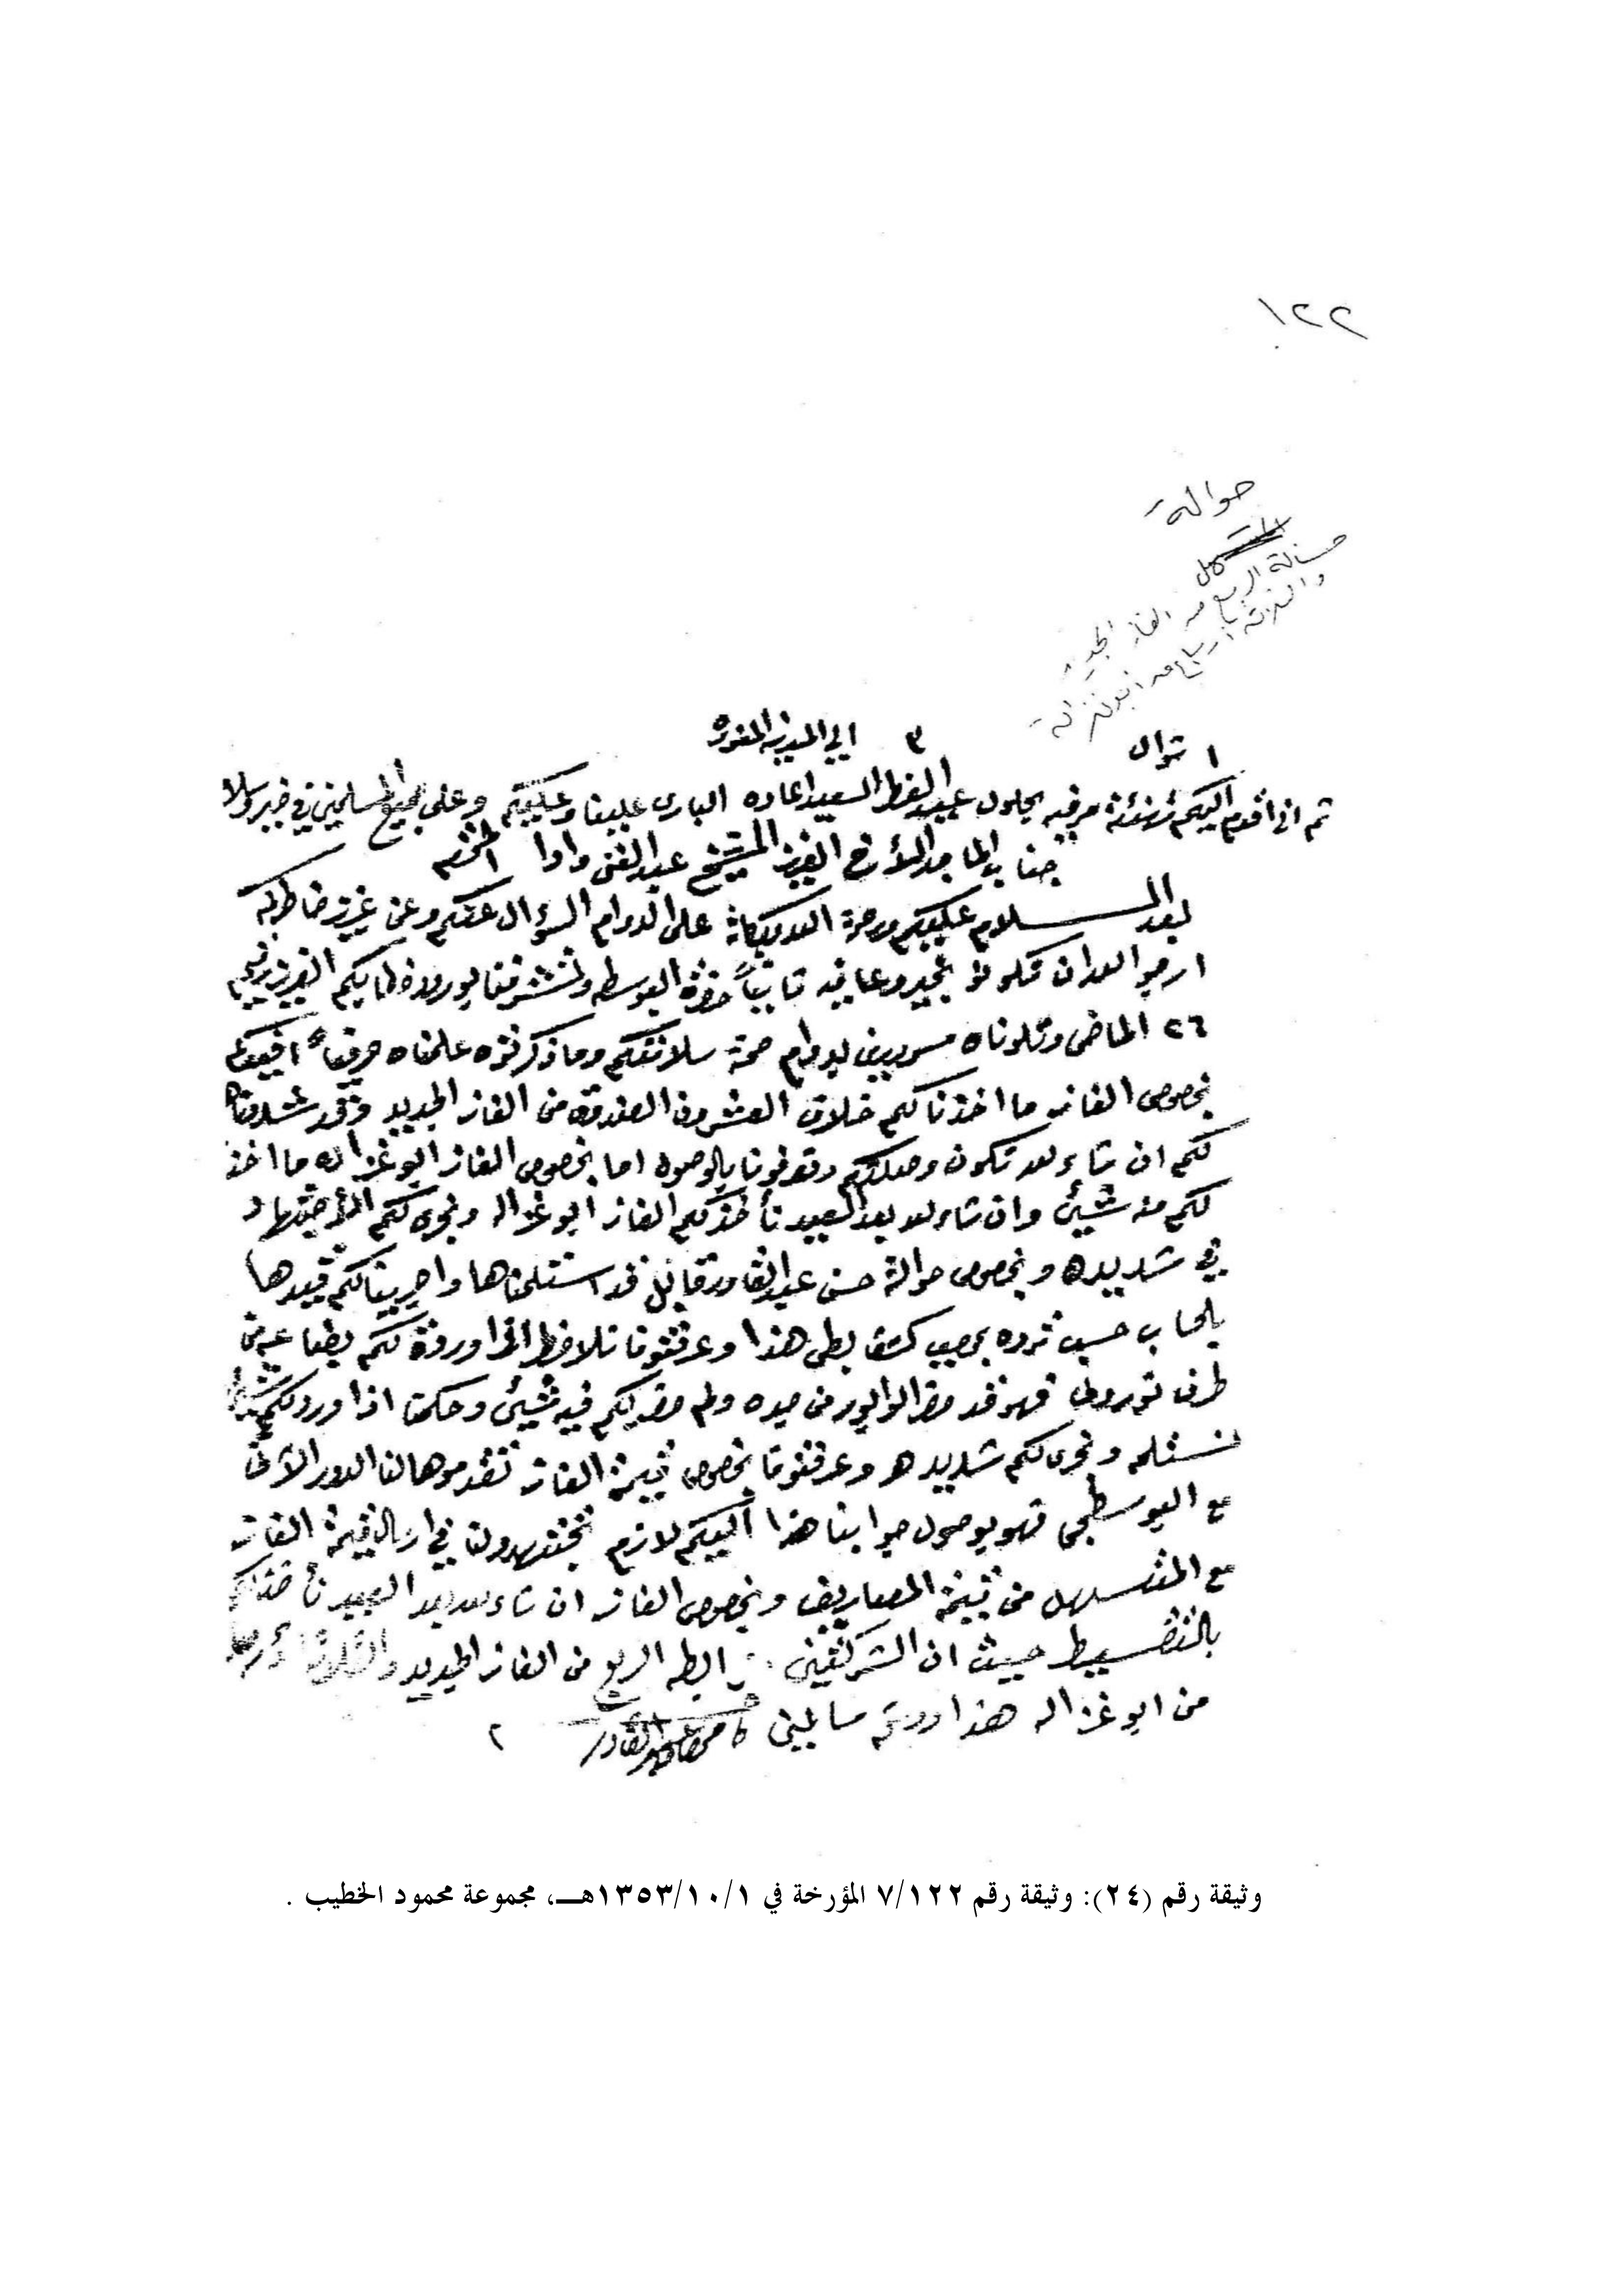 ١٢٢
حوالة
كامل
مسألة الربع من الغاز الجديد
والثلاثة ارباع من ابوغزالة
١ شوال ٣ الي المدينه المنوره
ثم اني اقدم اليكم تهنئة بحلول عيد الفطر السعيد اعاده البارى علينا وعليكم وعلى جميع المسلمين في خير وسلا
جناب الماجد الأخ العزيز الشيخ عبدالغنى دادا المحترم
بعد السلام عليكم ورحمة الله وبركاته على الدوام السؤال عنكم وعن عزيز خاطركم
ارجوا الله ان تكونوا بخير وعافيه ثانياً البوسطه وتشرفنا بورود كتابكم العزيز رقيم
٢٦ الماضى وتلوناه مسرورين بدوام صحة سلامتكم وما ذكرتوه علمناه حرفياً افيدكم
بخصوص الغاز ما اخذنا لكم خلاف العشرون الصندوق من الغاز الجديد وقد شددناها
لكم ان شاء الله تكون وصلتكم وتعرفونا بالوصول اما بخصوص الغاز ابوغزاله ما اخذ
لكم منه شيئ وان شاء الله بعد العيد نأخذ لكم الغاز ابو غزاله ونجرى لكم
في شديده وبخصوص حوالة حسن عبدالقادر قد استلمناها واجرينا لكم قيدها
بالحساب حسب بطى هذا وعرفتونا
طرف فهو قد من جده ولم لكم فيه شيئ اذا ورد لكم
نستلمه ونجرى لكم شديده وعرفتونا بخصوص قيمة الغاز تقدموها لنا الدور الآتى
مع البوسطجى فهو بوصول جوابنا هذا اليكم لازم تجتهدون في ارسال قيمة الغاز
مع المتسهل من قيمة المصاريف وبخصوص الغاز ان شاء الله بعد العيد نأخذ لكم
بالتقسيط حيث ان الشركتين الربع من الغاز الجديد والثلاثة أرباع
من ابو غزاله هذا ودمتم سالمين
٢
وثيقة رقم (٢٤): وثيقة رقم ٧/١٢٢ المؤرخة في ١٣٥٣/١٠/١هـ، مجموعة محمود الخطيب .